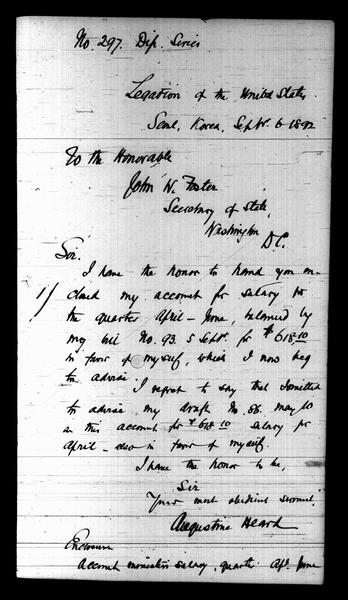 No. 297. Dip. Series
Legation of the United States
Seoul, Korea, Sept. 6 1892
To the Honorable
John W. Foster
Secretary of State,
Washington
D.C.
Sir.
I have the honor to hand you en-
1/ closed my account for salary for
the quarter April - June, balanced by
my bill No. 93. 5 Sept. for $618.10
in favor of myself, which I now beg
to advise.
I regret to say that I omitted
to advise my draft No. 88. May 10
on this account for $618.10 salary for
April - also in favor of myself.
I have the honor to be,
Sir
Your most obedient servant.
Augustine Heard
Enclosure
Account minister's salary, quarter Apl. June